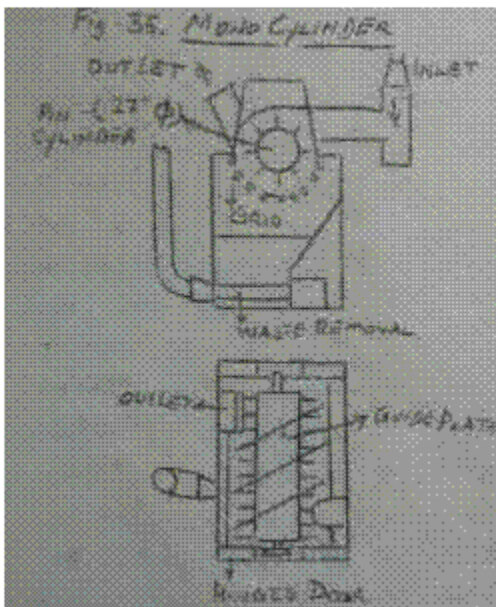 Fig-35. MONO CYLINDER
OUTLET
INLET
PIN
CYLINDER
27" Φ
GRID
WASTE REMOVAL
OUTLET
GUIDE PLATE
HINGED DOOR